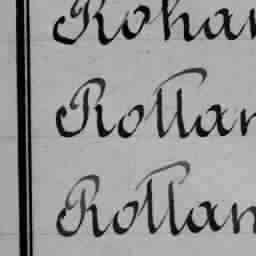 Rohan
Rollan
Rollan